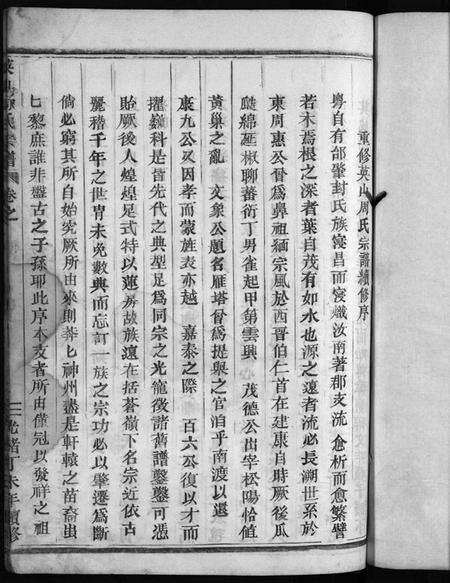 重修英山周氏宗譜續修序
粵自有邰肇封氏族寖昌而寖熾汝南著郡支流愈析而愈繁譬
若木焉根之深者葉自茂有如水也源之遠者流必長溯世系於
東周惠公晉為彝祖緬宗風於西晉伯仁首在建康自時厥後瓜
瓞綿延椒聊蕃衍丁男雀起甲第雲興 茂德公出宰松陽恰值
黃巢之亂 文衆公題名雁塔晉為提舉之官洎乎南渡以還
康九公又因孝而蒙旌表亦越 嘉泰之際 百六公復以才而
擢巍科是皆先代之典型足為同宗之光寵徵諸舊譜鑿鑿可憑
貽厥後人煌煌足式特以蓮房故族遠在括蒼嶺下名宗近依古
麗稽千年之世胄未免數典而忘訂一族之宗功必以肇遷為斷
倘必窮其所自始究厥所由來則莽莽神州盡是軒轅之苗裔蚩
蚩黎庶誰非盤古之子孫耶此序本支者所由僅冠以發祥之祖
氏宗譜 卷之
光緒丁未年續修